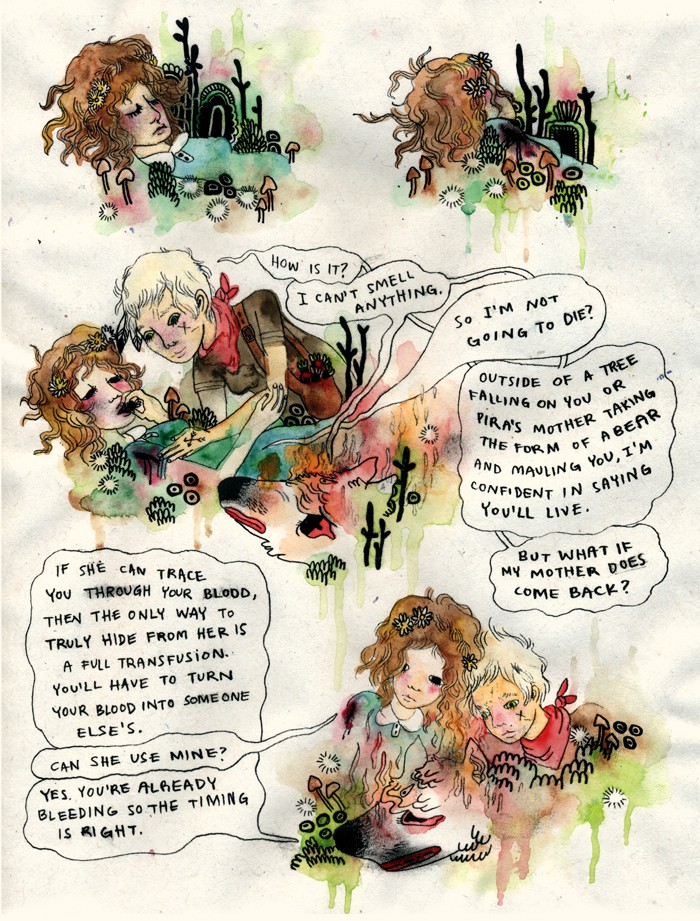 HOW IS IT?
I CAN'T SMELL
ANYTHING.
SO I'M NOT
GOING TO DIE?
OUTSIDE OF A TREE
FALLING ON YOU OR
PIRA'S MOTHER TAKING
THE FORM OF A BEAR
AND MAULING YOU, I'M
CONFIDENT IN SAYING
YOU'LL LIVE.
BUT WHAT IF
MY MOTHER DOES
COME BACK?
IF SHE CAN TRACE
YOU THROUGH YOUR BLOOD,
THEN THE ONLY WAY TO
TRULY HIDE FROM HER IS
A FULL TRANSFUSION.
YOU'LL HAVE TO TURN
YOUR BLOOD INTO SOMEONE
ELSE'S.
CAN SHE USE MINE?
YES. YOU'RE ALREADY
BLEEDING SO THE TIMING
IS RIGHT.